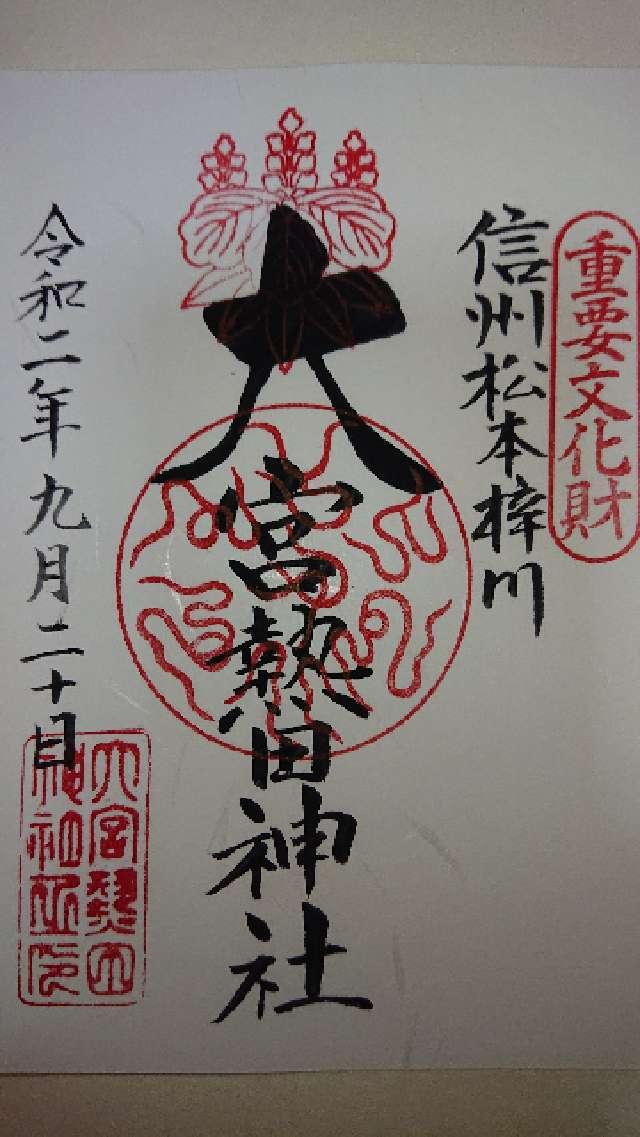 重要文化財
信州松本梓川
大宮熱田神社
令和二年九月二十日
大宮熱田
神社之印